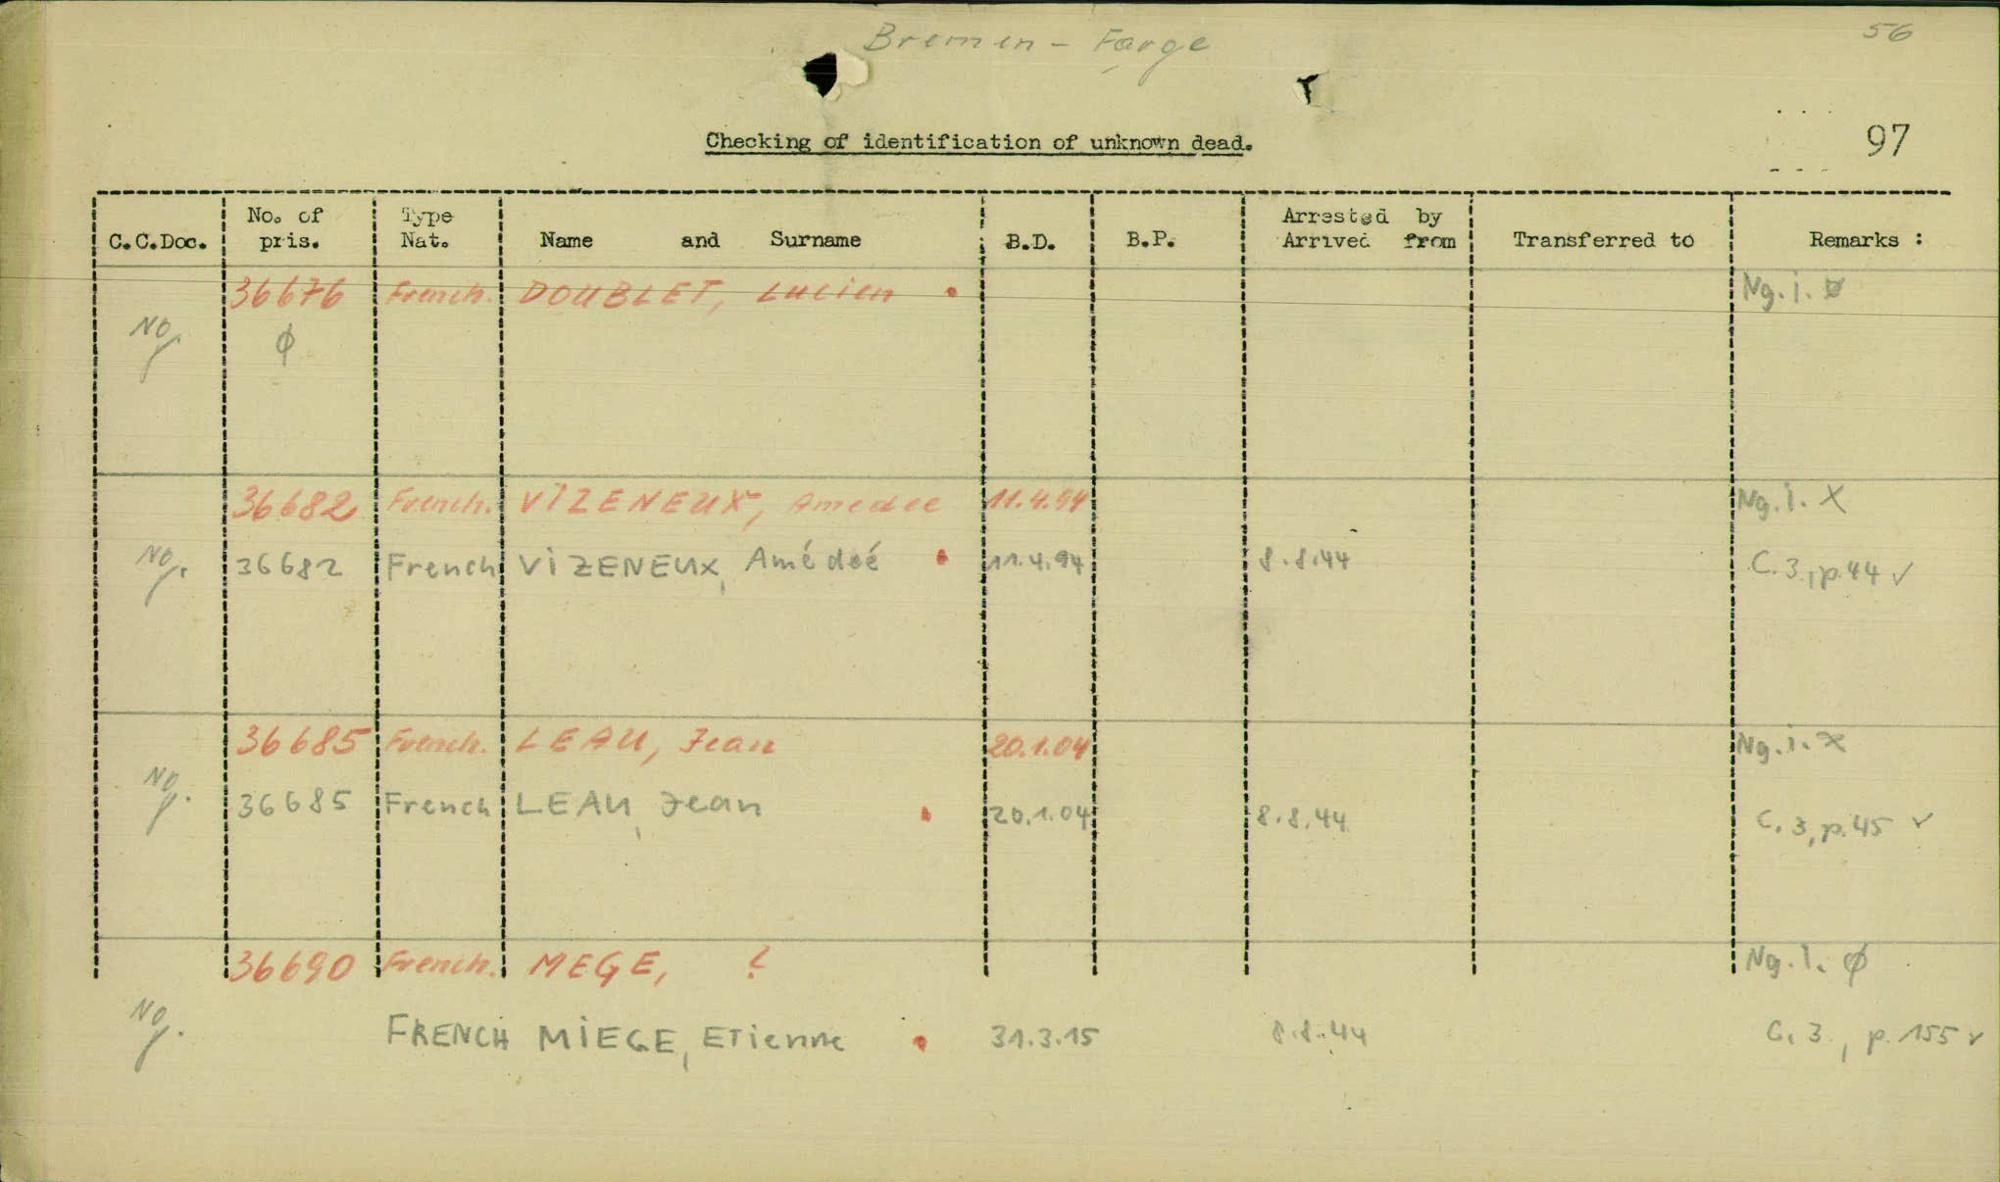 Bremen - Farge
56
Checking of identification of unknown dead.
97
C.C.Doc. No. of pris. Type Nat. Name and Surname B.D. B.P. Arrested by Arrived from Transferred to Remarks :
36676 French. DOUBLET, Lucien Ng. i.
Ng. ϕ
36682 French. VIZENEUX, Amedee 11.4.94 Ng. i. X
Ng. 36682 French VIZENEUX, Amédeé 11.4.94 8.8.44 C. 3, p. 44 ✓
36685 French. LEAU, Jean 20.1.04 Ng. i. X
Ng. 36685 French LEAU, Jean 20.1.04 8.8.44 C. 3, p. 45 ✓
36690 French. MEGE, ? Ng. i. ϕ
Ng. FRENCH MIEGE, ETienne 31.3.15 8.8.44 C. 3, p. 155 ✓